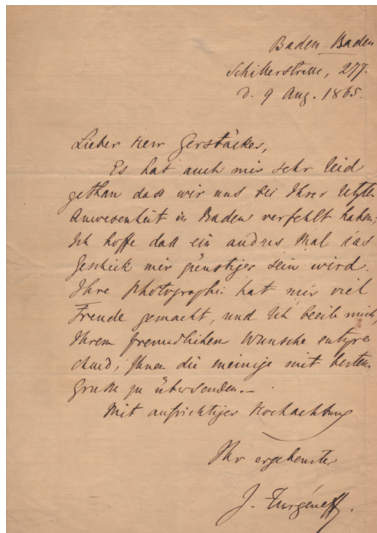 Baden-Baden
Schillerstrasse, 277.
d. 9 Aug. 1865.
Lieber Herr Gerstäcker,
Es hat auch mir sehr leid
gethan dass wir uns bei Ihrer letzten
Anwesenheit in Baden verfehlt haben;
Ich hoffe dass ein andres Mal das
Geschick mir günstiger sein wird.
Ihre Photographie hat mir viel
Freude gemacht, und ich beeile mich,
Ihrem freundlichen Wunsche entspre
chend, Ihnen die meinige mit bestem
Gruss zu übersenden.—
Mit aufrichtiger Hochachtung
Ihr ergebenster
J. Turgéneff.